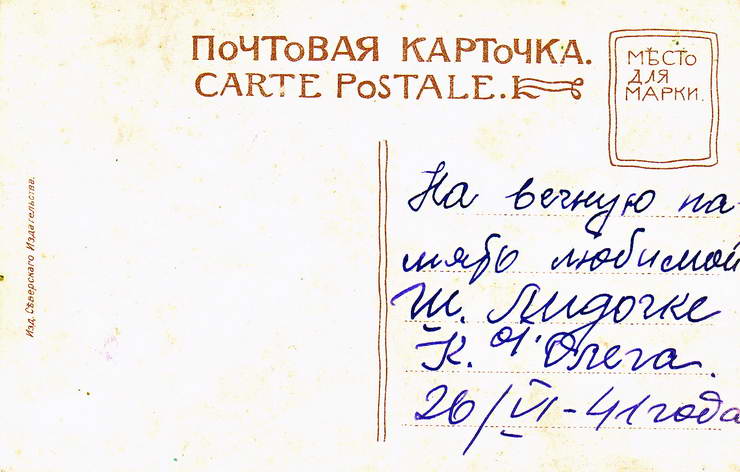 ПОЧТОВАЯ КАРТОЧКА.
CARTE POSTALE.
МѢСТО
ДЛЯ
МАРКИ.
Изд. Сѣверскаго Издательства.
На вечную па-
мять любимой
Ш. Лидочке
К. от Олега.
26/VI-41 года